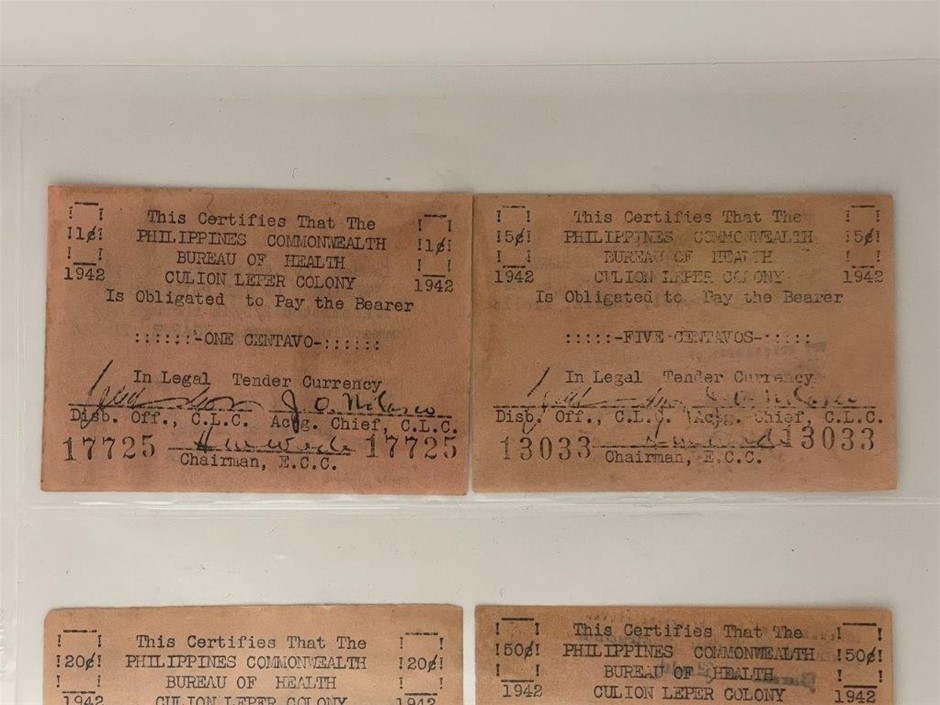 This Certifies That The
!1¢! PHILIPPINES COMMONWEALTH !1¢!
BUREAU OF HEALTH
1942 CULION LEPER COLONY 1942
Is Obligated to Pay the Bearer
::::::-ONE CENTAVO-::::::
In Legal Tender Currency
J. O. Nolasco
Disb. Off., C.L.C. Ac'g. Chief, C.L.C.
17725 H. W. Wade 17725
Chairman, E.C.C.
This Certifies That The
!5¢! PHILIPPINES COMMONWEALTH !5¢!
BUREAU OF HEALTH
1942 CULION LEPER COLONY 1942
Is Obligated to Pay the Bearer
:::::-FIVE CENTAVOS-:::::
In Legal Tender Currency
Disb. Off., C.L.C. Ac'g. Chief, C.L.C.
13033 13033
Chairman, E.C.C.
This Certifies That The
!20¢! PHILIPPINES COMMONWEALTH !20¢!
BUREAU OF HEALTH
1942 CULION LEPER COLONY 1942
This Certifies That The
!50¢! PHILIPPINES COMMONWEALTH !50¢!
BUREAU OF HEALTH
1942 CULION LEPER COLONY 1942